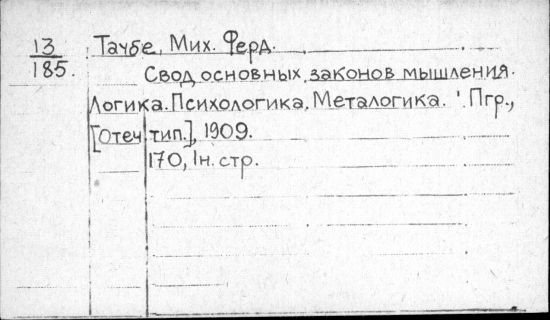 13
185.
Таубе, Мих. Ферд.
Свод основных законов мышления.
Логика. Психологика. Металогика. Пгр.,
[Отеч. тип.], 1909.
170, 1н. стр.